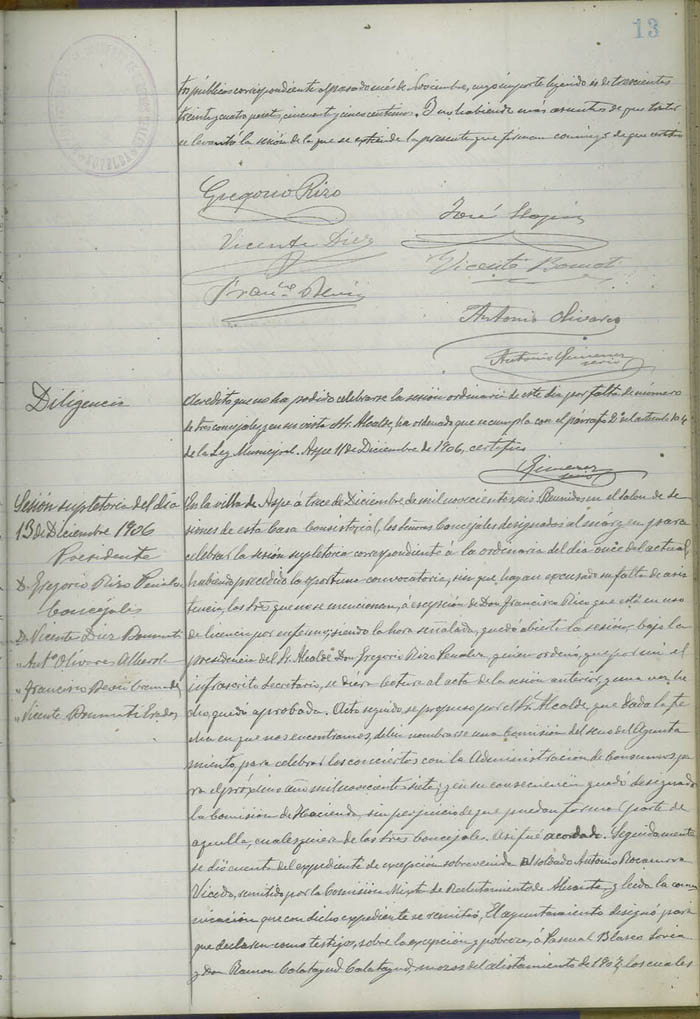 13
tos públicos correspondiente al pasado mes de Noviembre, cuyo importe liquido es de trescientas
treinta y cuatro pesetas cincuenta y cinco centimos. Y no habiendo más asuntos de que tratar
se levantó la sesión de la que se extiende la presente que firman conmigo de que certifico
Gregorio Rizo
José
Vicente Diez
Vicente Bonmati
Antonio Olivares
Antonio Gimenez
serio
Diligencia
Acredito que no ha podido celebrarse la sesión ordinaria de este dia por falta de número
de tres concejales y en su vista el Sr. Alcalde, ha ordenado que se cumpla con el párrafo 2º del artículo 104
de la Ley Municipal. Aspe 11 de Diciembre de 1906, certifico
Gimenez
serio
Sesión supletoria del dia
13 de Diciembre 1906
Presidente
D. Gregorio Rizo Penalva
Concejales
D. Vicente Diez Bonmati
" Antº Olivares Alberola
" Francisco
" Vicente Bonmati Prados
En la villa de Aspe á trece de Diciembre de mil novecientos seis. Reunidos en el salon de se
siones de esta Casa Consistorial, los señores Concejales designados al márgen para
celebrar la sesión supletoria correspondiente á la ordinaria del dia once del actual,
habiendo precedido la oportuna convocatoria, sin que hayan excusado su falta de asis
tencia, los Sres que no se mencionan, á excepción de Don Francisco Rico que está en uso
de licencia por enfermo, siendo la hora señalada, quedó abierta la sesión, bajo la
presidencia del Sr. Alcalde Don Gregorio Rizo Penalva quien ordenó que por mi el
infrascrito Secretario, se diéra lectura al acta de la sesión anterior, y una vez he
cho, quedó aprobada. Acto seguido se propuso por el Sr. Alcalde, que dada la fe
cha en que nos encontramos, debia nombrarse una Comisión del seno del Ayunta
miento, para celebrar los conciertos con la Administración de Consumos, pa
ra el próximo año mil novecientos siete; y en su consecuencia quedó designada
la Comisión de Hacienda, sin perjuicio de que puedan formar parte de
aquella, cualesquiera de los Sres Concejales. Asi fué acordado. Seguidamente
se dió cuenta del expediente de excepción sobrevenida al soldado Antonio Rocamora
Vicedo, remitido por la Comisión Mixta de Reclutamiento de Alicante, y leida la comu
nicación que con dicho expediente se remitió, El Ayuntamiento designó para
que declaren como testigos, sobre la excepción y pobreza, á Pascual Blasco Soria
y Don Ramon Calatayud Calatayud, mozos del alistamiento de 1903, los cuales